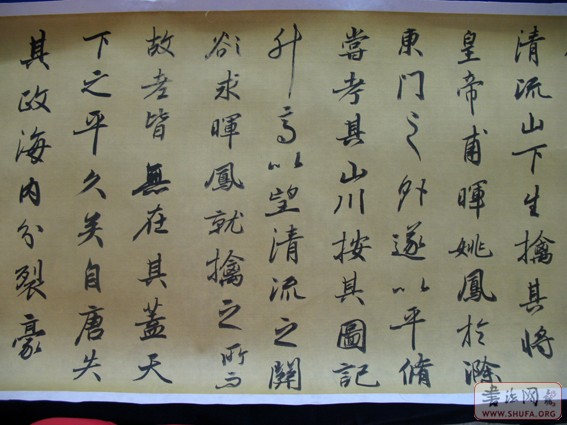 清流山下生擒其將
皇帝甫暉姚鳳於滁
東門之外遂以平脩
當考其山川按其圖記
升高以望清流之關
欲求暉鳳就擒之所而
故老皆無在其蓋天
下之平久矣自唐失
其政海内分裂豪
書法网
WWW.SHUFA.ORG